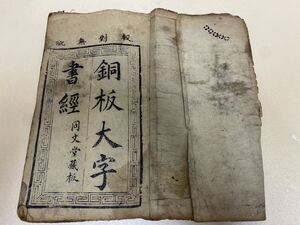 翻刻無宄
銅板大字
書經
同文堂藏板